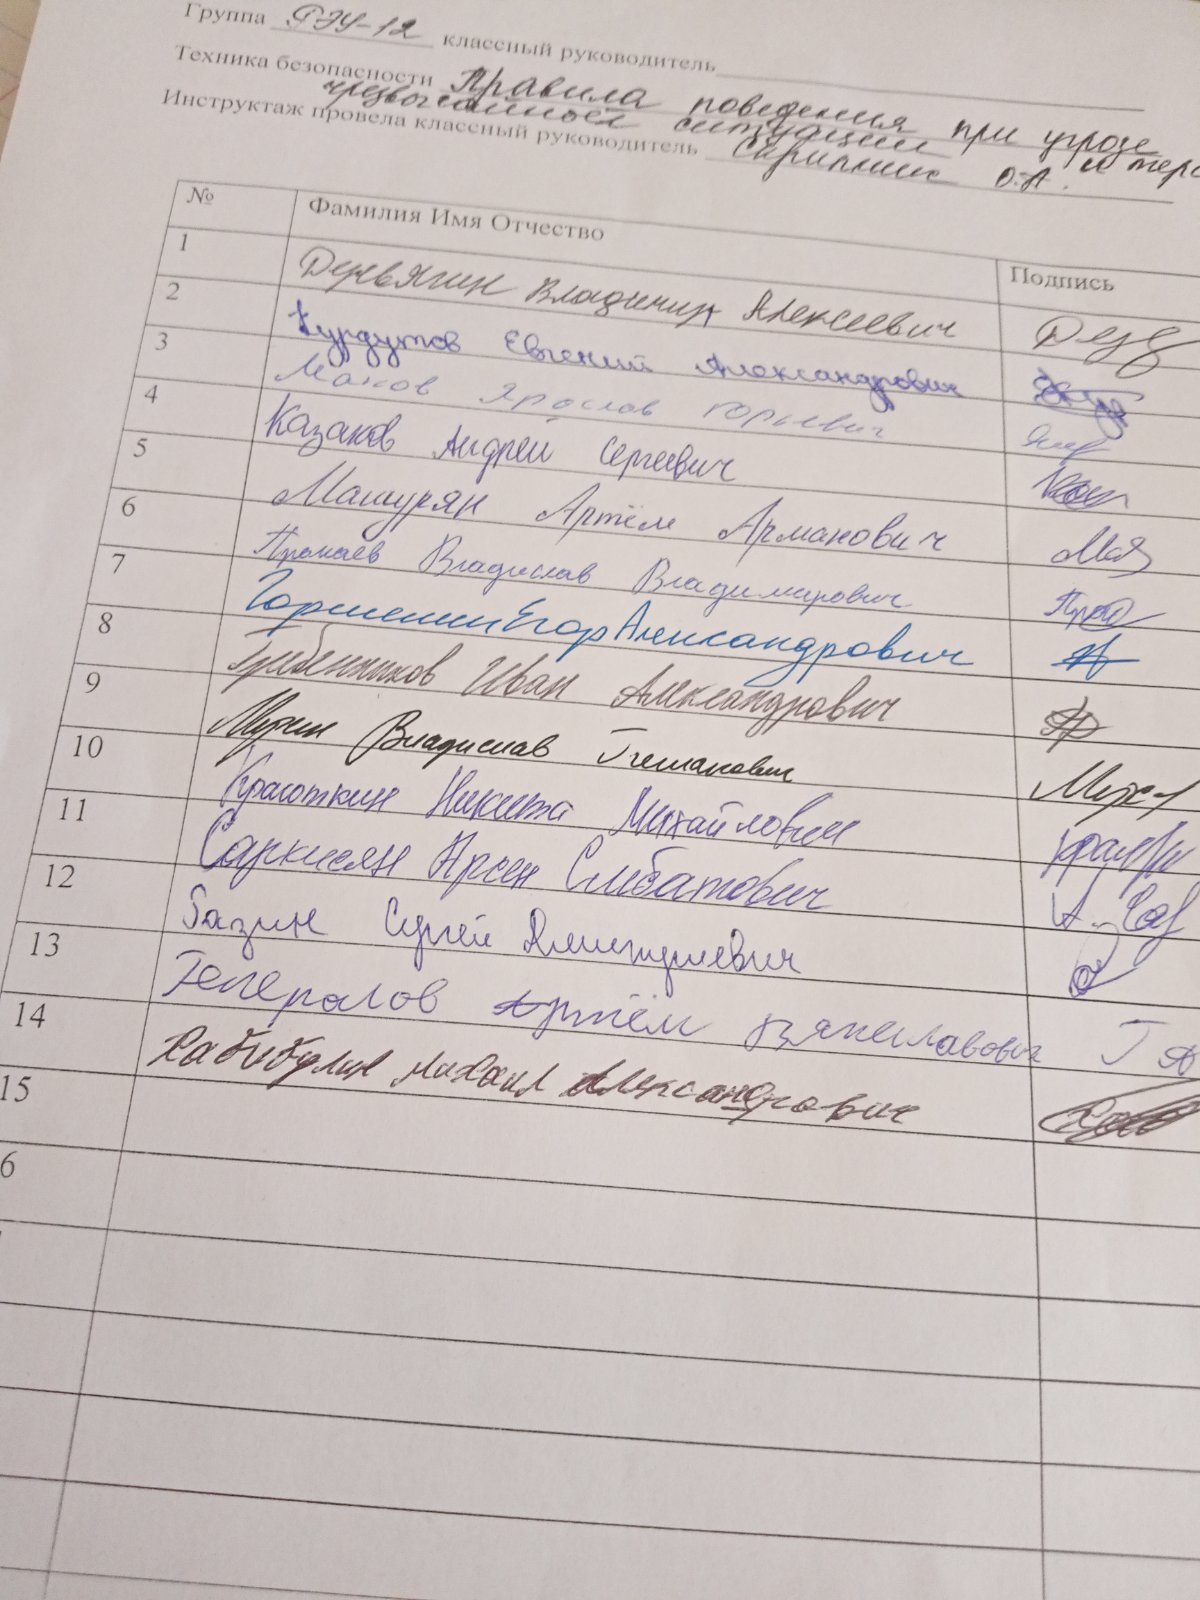 Группа РЭУ-12 классный руководитель
Техника безопасности Правила поведения при угрозе
чрезвычайной ситуации и терс
Инструктаж провела классный руководитель Скрипник О.А.
№ Фамилия Имя Отчество Подпись
1 Деревягин Владимир Алексеевич Дер
2 Курдутов Евгений Александрович
3 Махов Ярослав Юрьевич
4 Казаков Андрей Сергеевич
5 Машурян Артём Арманович Мая
6 Прокаев Владислав Владимирович
7 Горшенин Егор Александрович
8 Гребенников Иван Александрович
9 Мухин Владислав
10 Краюткин Никита Михайлович
11 Саркисян Арсен Смбатович
12 Базин Сергей
13 Генералов Артём Вячеславович ГА
14 Хабибулин Михаил Александрович
15
6